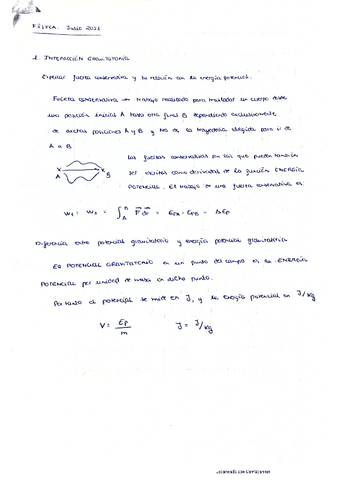 FÍSICA. Julio 2021
1. INTERACCIÓN GRAVITATORIA
Explicar fuerza conservativa y su relación con la energía potencial.
Fuerza conservativa → trabajo realizado para trasladar un cuerpo desde
una posición inicial A hasta otra final B dependiendo exclusivamente
de dichas posiciones A y B y NO de la trayectoria elegida para ir de
A a B.
Las fuerzas conservativas son las que pueden también
ser escritas como derivadas de la función ENERGÍA
POTENCIAL. El trabajo de una fuerza conservativa es:
A B
W₁ = W₂ = ∫_A^B F dr = EpA - EpB = - ΔEp
Diferencia entre potencial gravitatorio y energía potencial gravitatoria
El POTENCIAL GRAVITATORIO en un punto del campo es la ENERGÍA
POTENCIAL por unidad de masa en dicho punto.
Por tanto el potencial se mide en J, y la energía potencial en J/kg
V = Ep/m J = J/kg
Escaneado con CamScanner